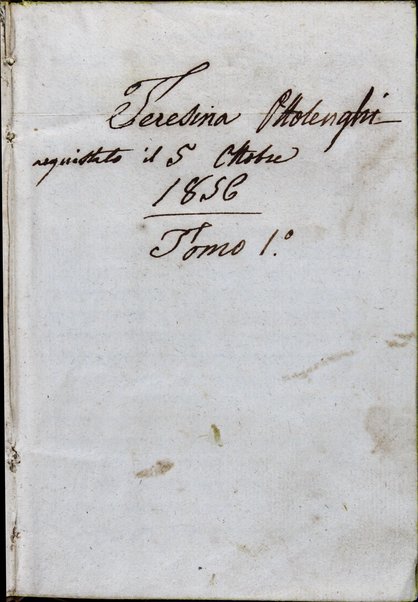 Teresina Ottolenghi
acquistato il 5 Ottobre
1856
Tomo 1.º